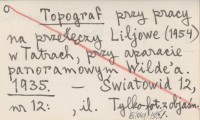 Topograf przy pracy
na przełęczy Liljowe (1954)
w Tatrach, przy aparacie
panoramowym Wilde'a.
1935. — Światowid 12,
nr 12: , il. Tylko fot. z objaśn.